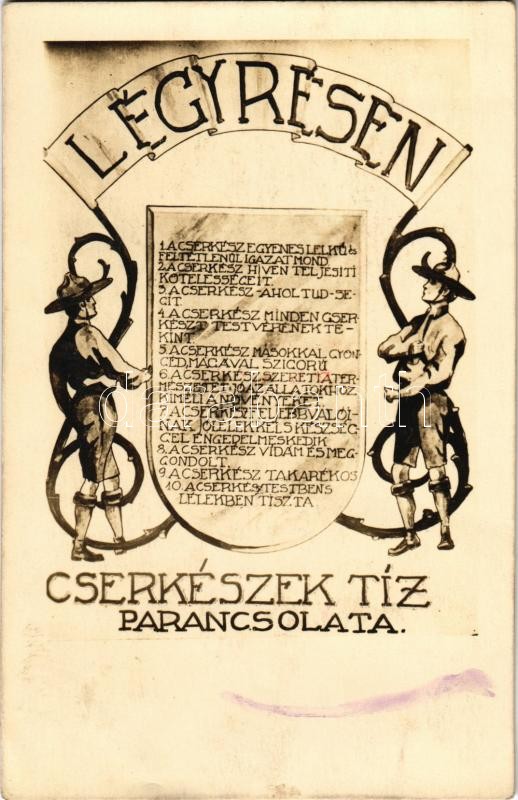 LÉGY RÉSEN
1. A CSERKÉSZ EGYENESLELKŰ ÉS
FELTÉTLENÜL IGAZAT MOND
2. A CSERKÉSZ HÍVEN TELJESÍTI
KÖTELESSÉGEIT
3. A CSERKÉSZ - AHOL TUD - SE-
GÍT
4. A CSERKÉSZ MINDEN CSER-
KÉSZT TESTVÉRÉNEK TE-
KINT
5. A CSERKÉSZ MÁSOKKAL GYÖN-
GÉD, MAGÁVAL SZIGORÚ
6. A CSERKÉSZ SZERETI A TER-
MÉSZETET JÓ AZ ÁLLATOKHOZ
KIMÉLI A NÖVÉNYEKET
7. A CSERKÉSZ ELJEBBVALÓI-
NAK JÓLÉLEKKEL S KÉSZSÉG-
GEL ENGEDELMESKEDIK
8. A CSERKÉSZ VIDÁM ÉS MEG-
GONDOLT
9. A CSERKÉSZ TAKARÉKOS
10. A CSERKÉSZ TESTBEN S
LÉLEKBEN TISZTA
CSERKÉSZEK TÍZ
PARANCSOLATA.